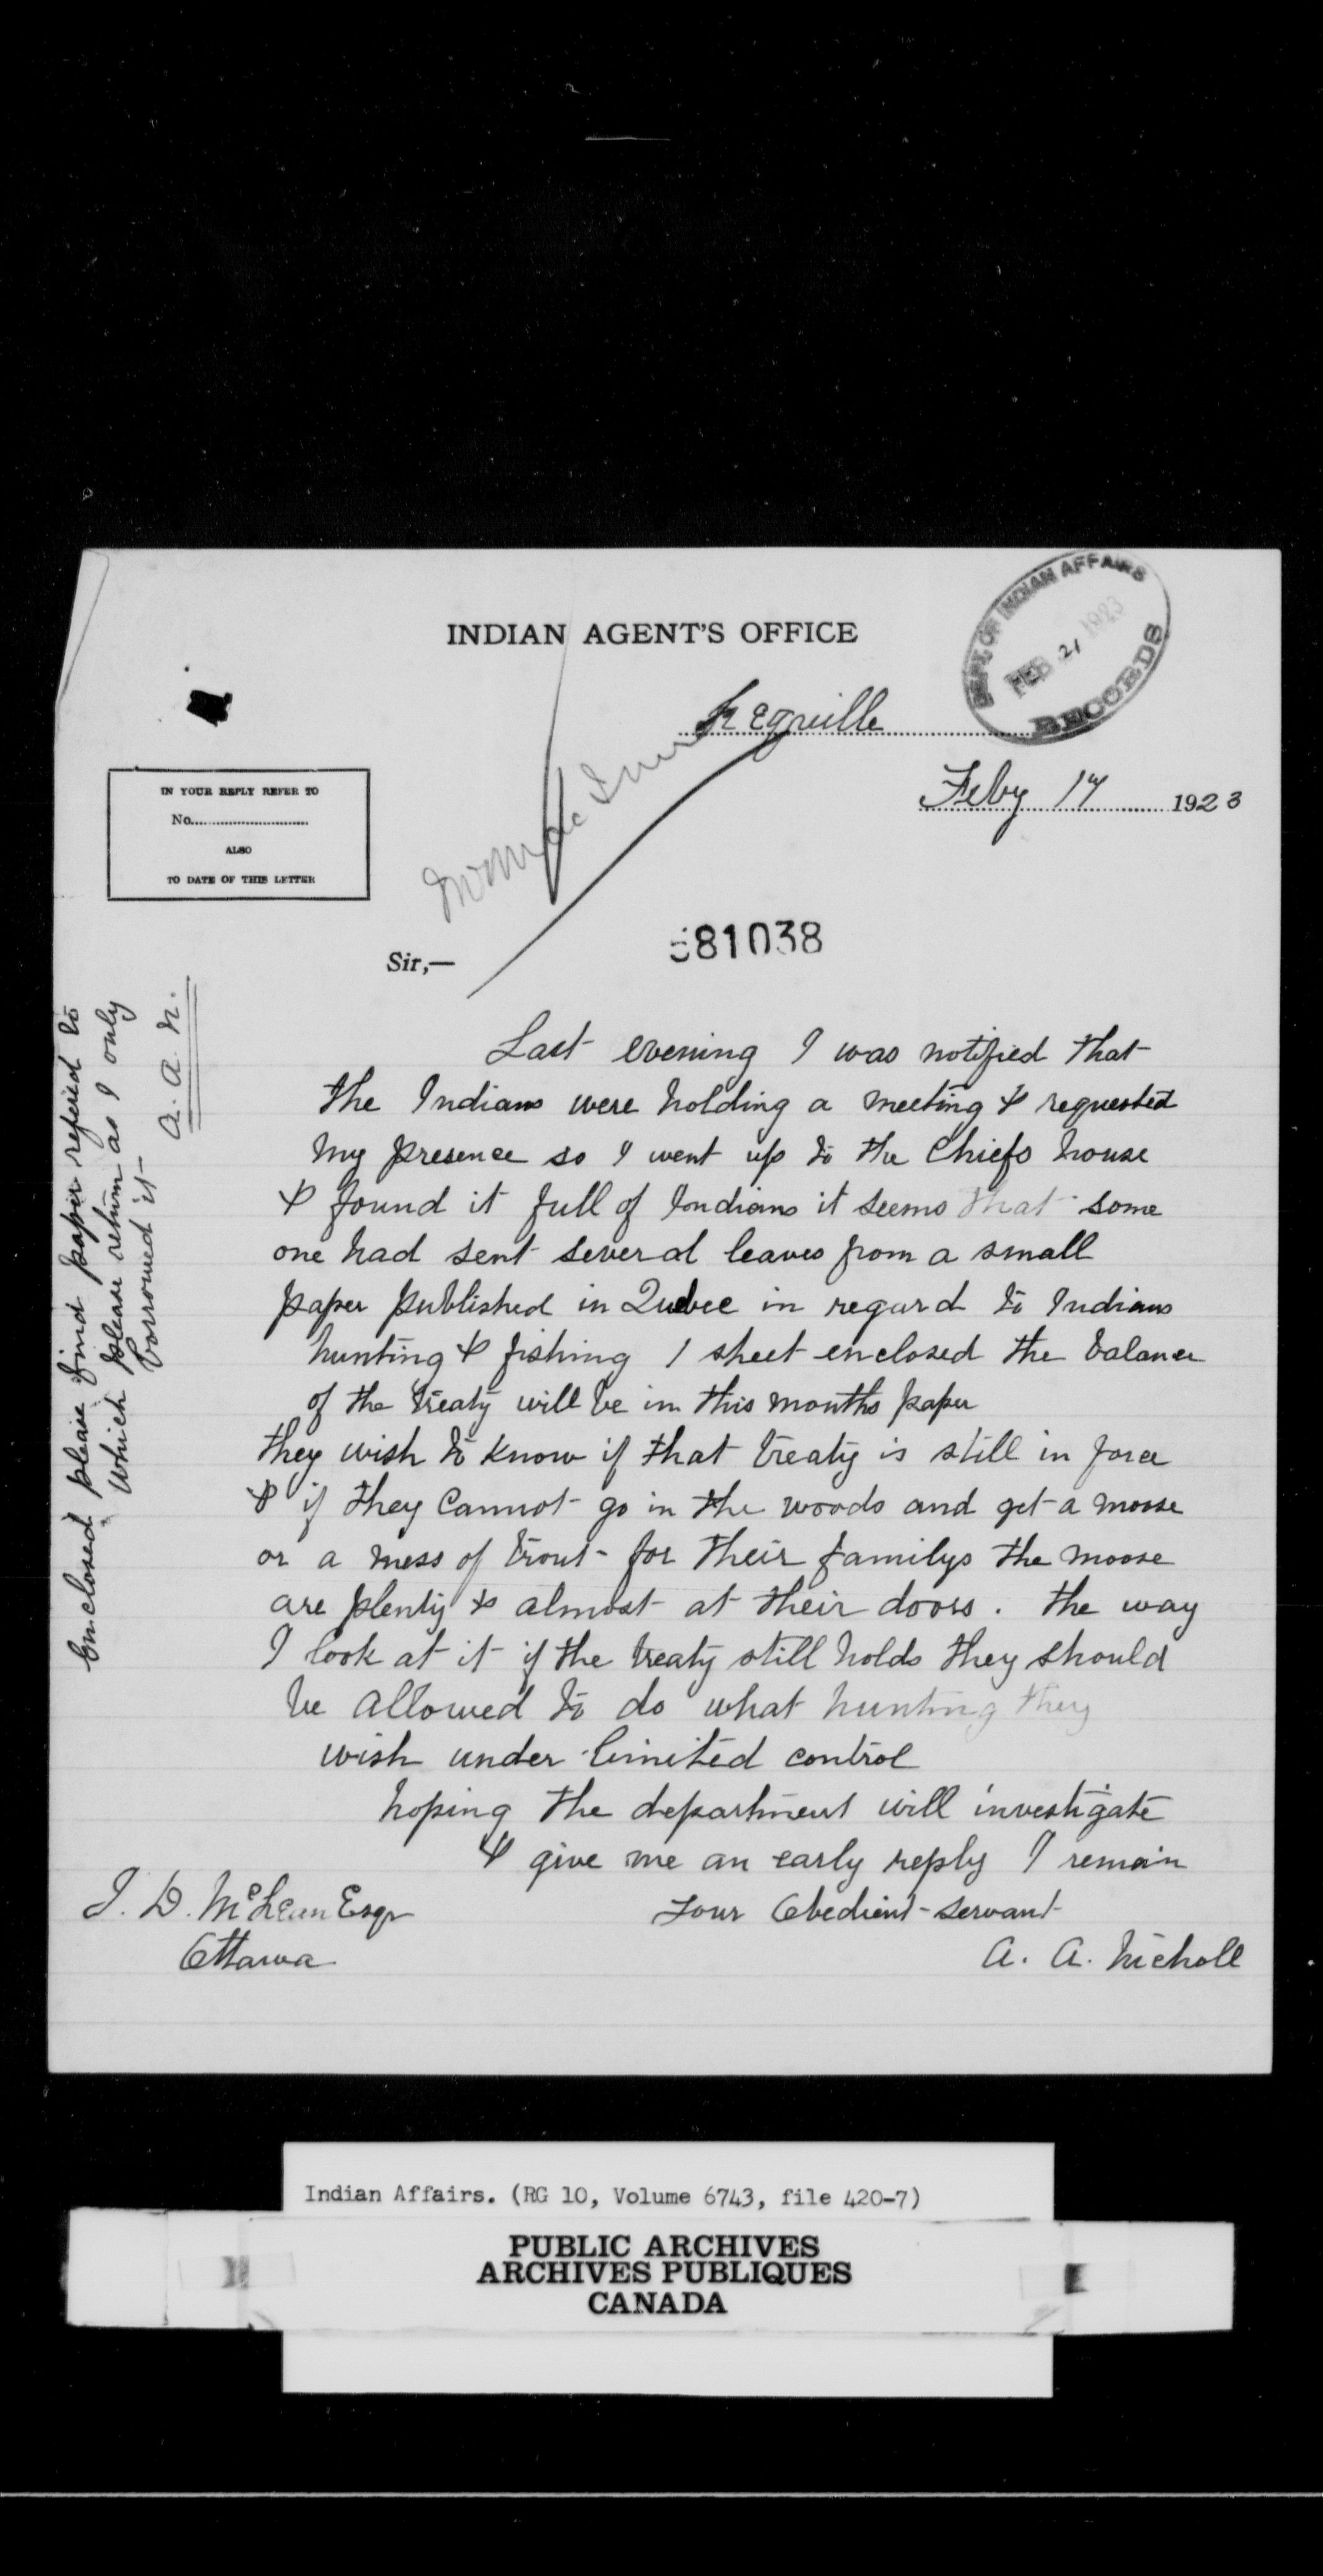 INDIAN AGENT'S OFFICE
DEPT. OF INDIAN AFFAIRS
FEB 21 1923
RECORDS
Feby 17 1923
IN YOUR REPLY REFER TO
No.
ALSO
TO DATE OF THIS LETTER
581038
Sir,—
Last evening I was notified that
the Indians were holding a meeting & requested
my presence so I went up to the Chiefs house
& found it full of Indians it seems that some
one had sent several leaves from a small
paper published in Quebec in regard to Indians
hunting & fishing 1 sheet enclosed the balance
of the treaty will be in this months paper
they wish to know if that treaty is still in force
& if they cannot go in the woods and get a moose
or a mess of trout for their familys the moose
are plenty & almost at their doors. the way
I look at it if the treaty still holds they should
be allowed to do what hunting they
wish under limited control
hoping the department will investigate
& give me an early reply I remain
Your Obedient servant
A. A. Nicholl
J. D. McLean Esqr
Ottawa
Enclosed please find paper refered to
which please return as I only
borrowed it
A. A. N.
Indian Affairs. (RG 10, Volume 6743, file 420-7)
PUBLIC ARCHIVES
ARCHIVES PUBLIQUES
CANADA